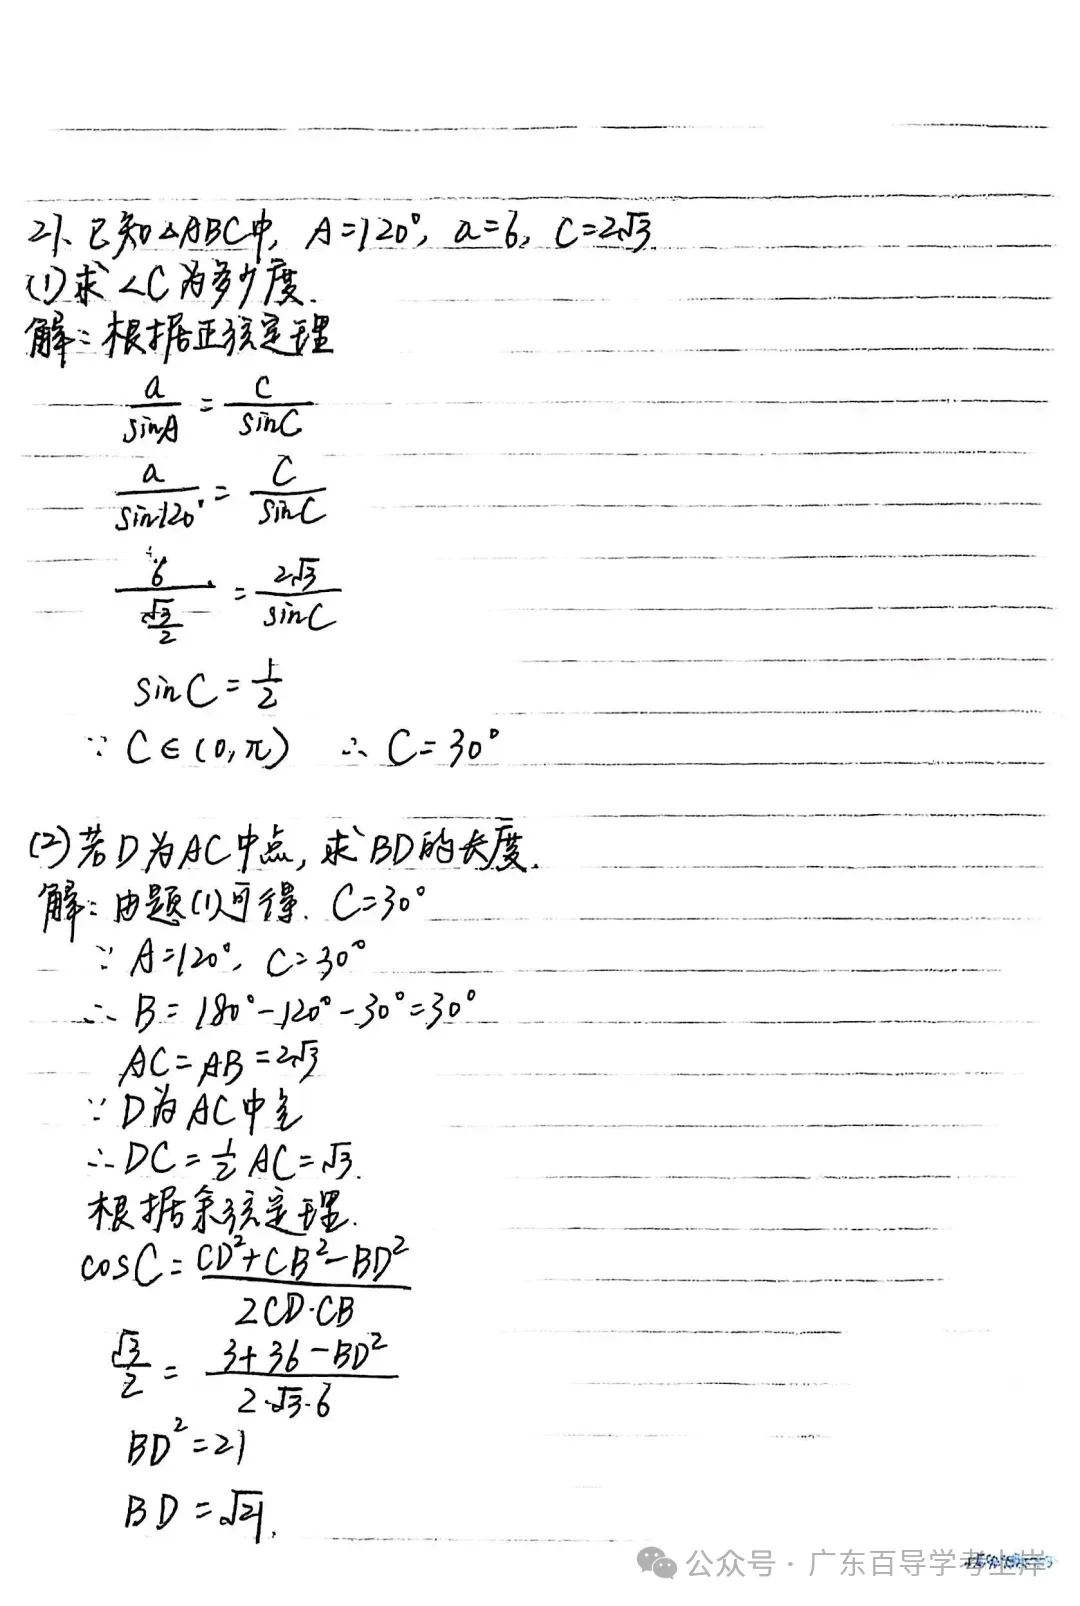 21、已知△ABC中, A=120°, a=6, C=2√3.
(1)求∠C为多少度.
解：根据正弦定理
a/sinA = c/sinC
a/sin120° = c/sinC
6/(√3/2) = 2√3/sinC
sinC = 1/2
∵ C∈(0,π) ∴ C=30°
(2)若D为AC中点, 求BD的长度.
解：由题(1)可得. C=30°
∵ A=120°, C=30°
∴ B=180°-120°-30°=30°
AC=AB=2√3
∵ D为AC中点
∴ DC=1/2 AC=√3.
根据余弦定理.
cosC = (CD²+CB²-BD²)/(2CD·CB)
√3/2 = (3+36-BD²)/(2·√3·6)
BD²=21
BD=√21.
公众号·广东百导学考上岸